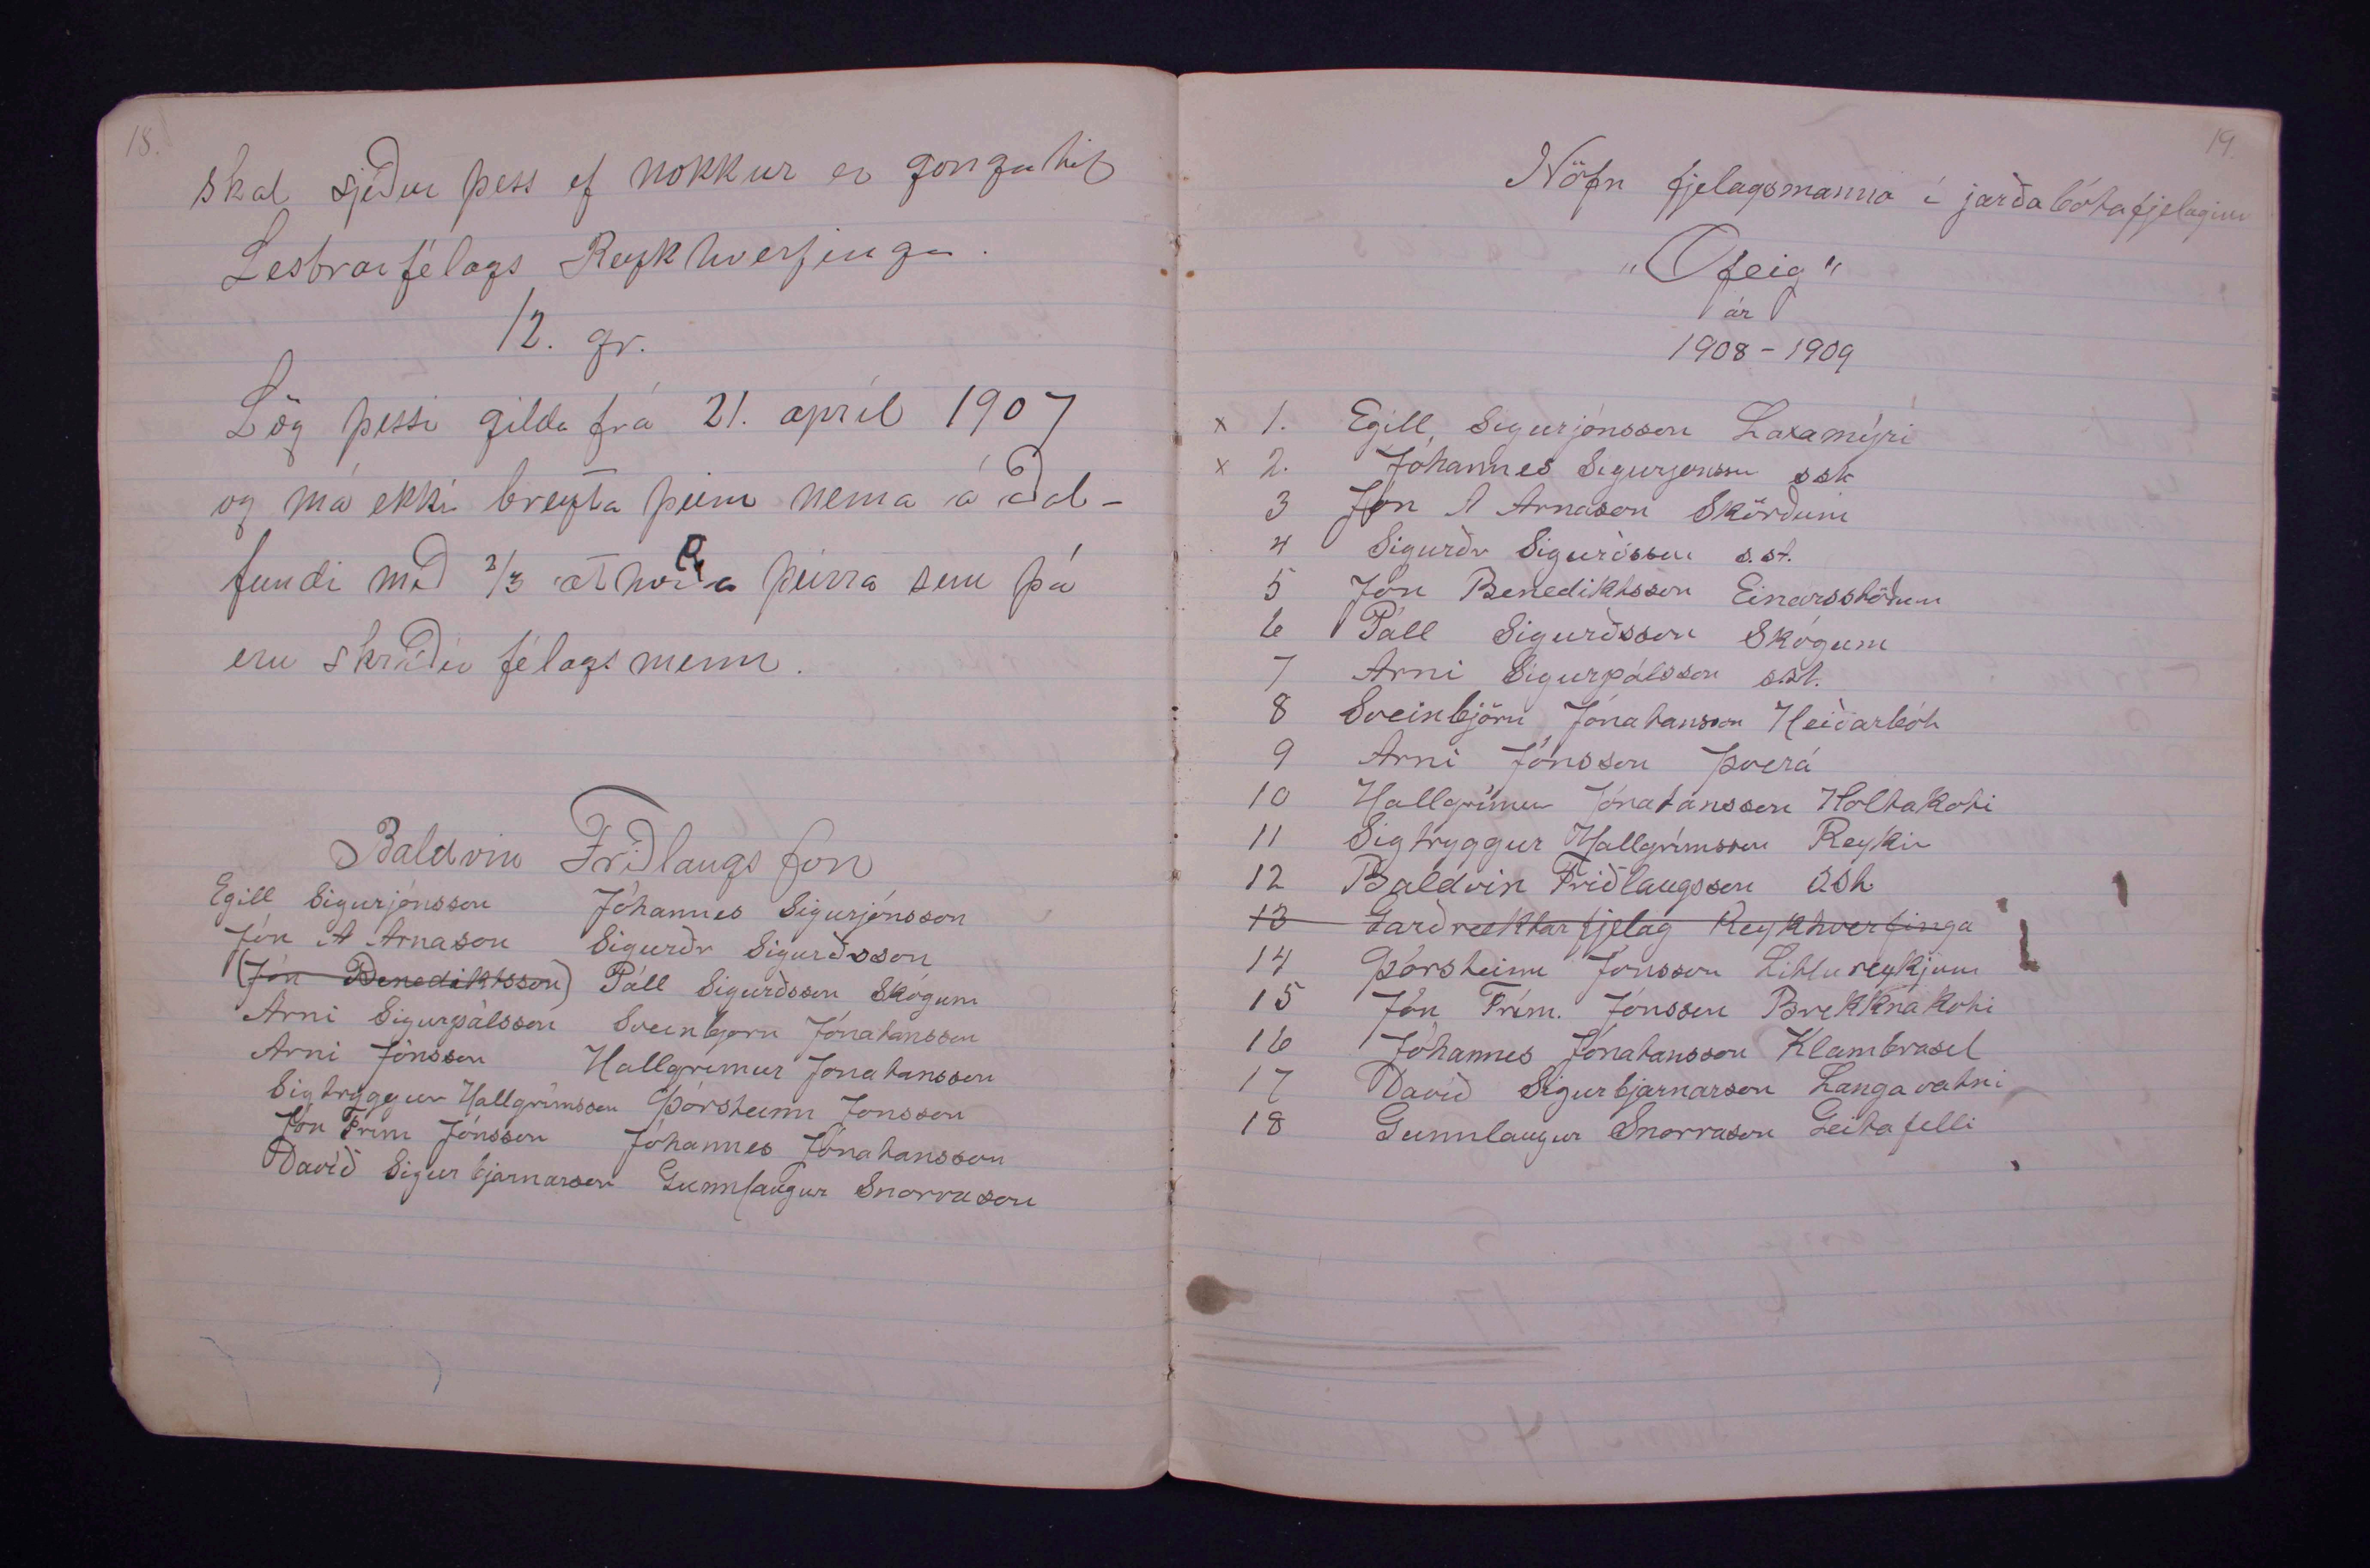 18.
skal sjóður þess ef nokkur er ganga til
Lestrarfélags Reykhverfinga.
12. gr.
Lög þessi gilda frá 21. apríl 1907
og má ekki breyta þeim nema á aðal-
fundi með 2/3 atkvæða þeirra sem þá
eru skráðir félagsmenn.
Baldvin Friðlaugsson
Egill Sigurjónsson Jóhannes Sigurjónsson
Jón A Arnason Sigurðr Sigurðsson
(Jón Benediktsson) Páll Sigurðsson Skógum
Arni Sigurpálsson Sveinbjörn Jónatansson
Arni Jónsson Hallgrímur Jónatansson
Sigtryggur Hallgrímsson Þórsteinn Jónsson
Jón Frím Jónsson Jóhannes Jónatansson
Davíð Sigurbjarnarson Gunnlaugur Snorrason
19.
Nöfn fjelagsmanna í jarðabótafjelaginu
"Ofeig"
ár
1908-1909
x 1. Egill Sigurjónsson Laxamýri
x 2. Jóhannes Sigurjonsson sst
3 Jón A Arnason Skörðum
4 Sigurðr Sigurðsson s.st.
5 Jón Benediktsson Einarsstöðum
6 Páll Sigurðsson Skógum
7 Arni Sigurpálsson s.st.
8 Sveinbjörn Jónatansson Heiðarbót
9 Arni Jónsson Þverá
10 Hallgrímur Jónatansson Holtakoti
11 Sigtryggur Hallgrímsson Reykir
12 Baldvin Friðlaugsson sst
13 Garðræktarfjelag Reykhverfinga
14 Þórsteinn Jónsson Litlureykjum
15 Jón Frím. Jónsson Brekknakoti
16 Jóhannes Jónatansson Klambrasel
17 Davíð Sigurbjarnarson Langavatni
18 Gunnlaugur Snorrason Geitafelli